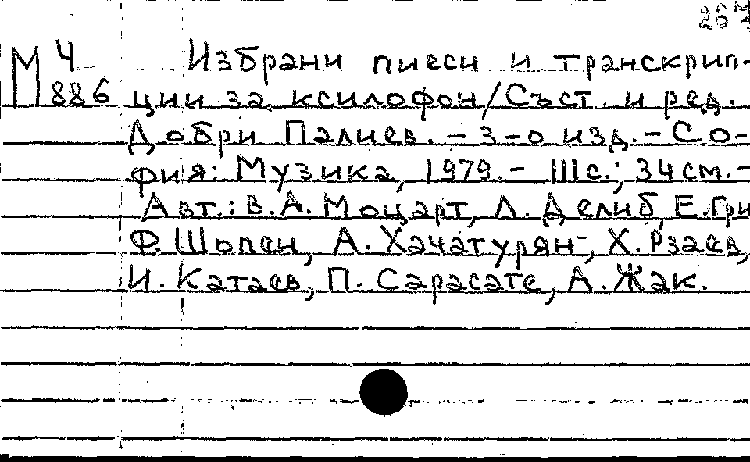 267
М Ч
886
Избрани пиеси и транскрип-
ции за ксилофон/Съст. и ред.
Добри Палиев. - 3-о изд. - Со-
фия: Музика, 1979. - 111с.; 34см. -
Авт.: В.А. Моцарт, Л. Делиб, Е.Гри
Ф. Шопен, А. Хачатурян, Х. Рзаев,
И. Катаев, П. Сарасате, А. Жак.